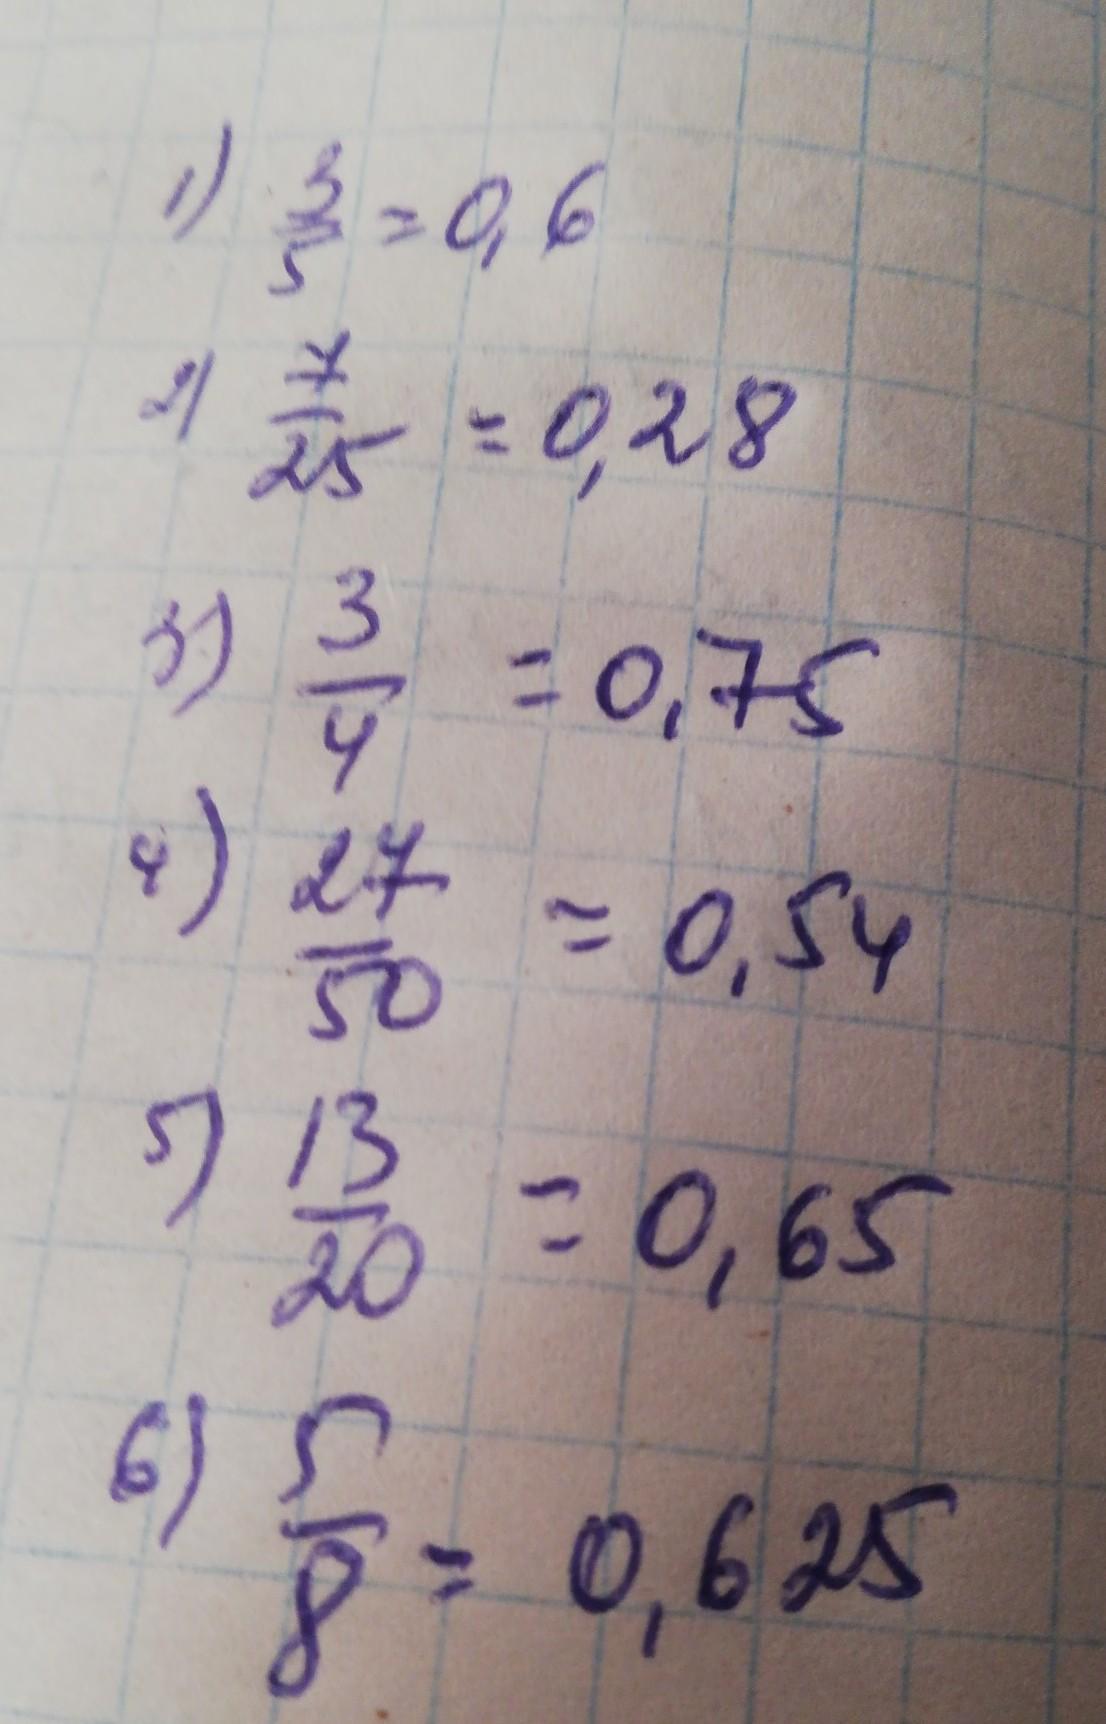 1) 3/5 = 0,6
2) 7/25 = 0,28
3) 3/4 = 0,75
4) 27/50 = 0,54
5) 13/20 = 0,65
6) 5/8 = 0,625